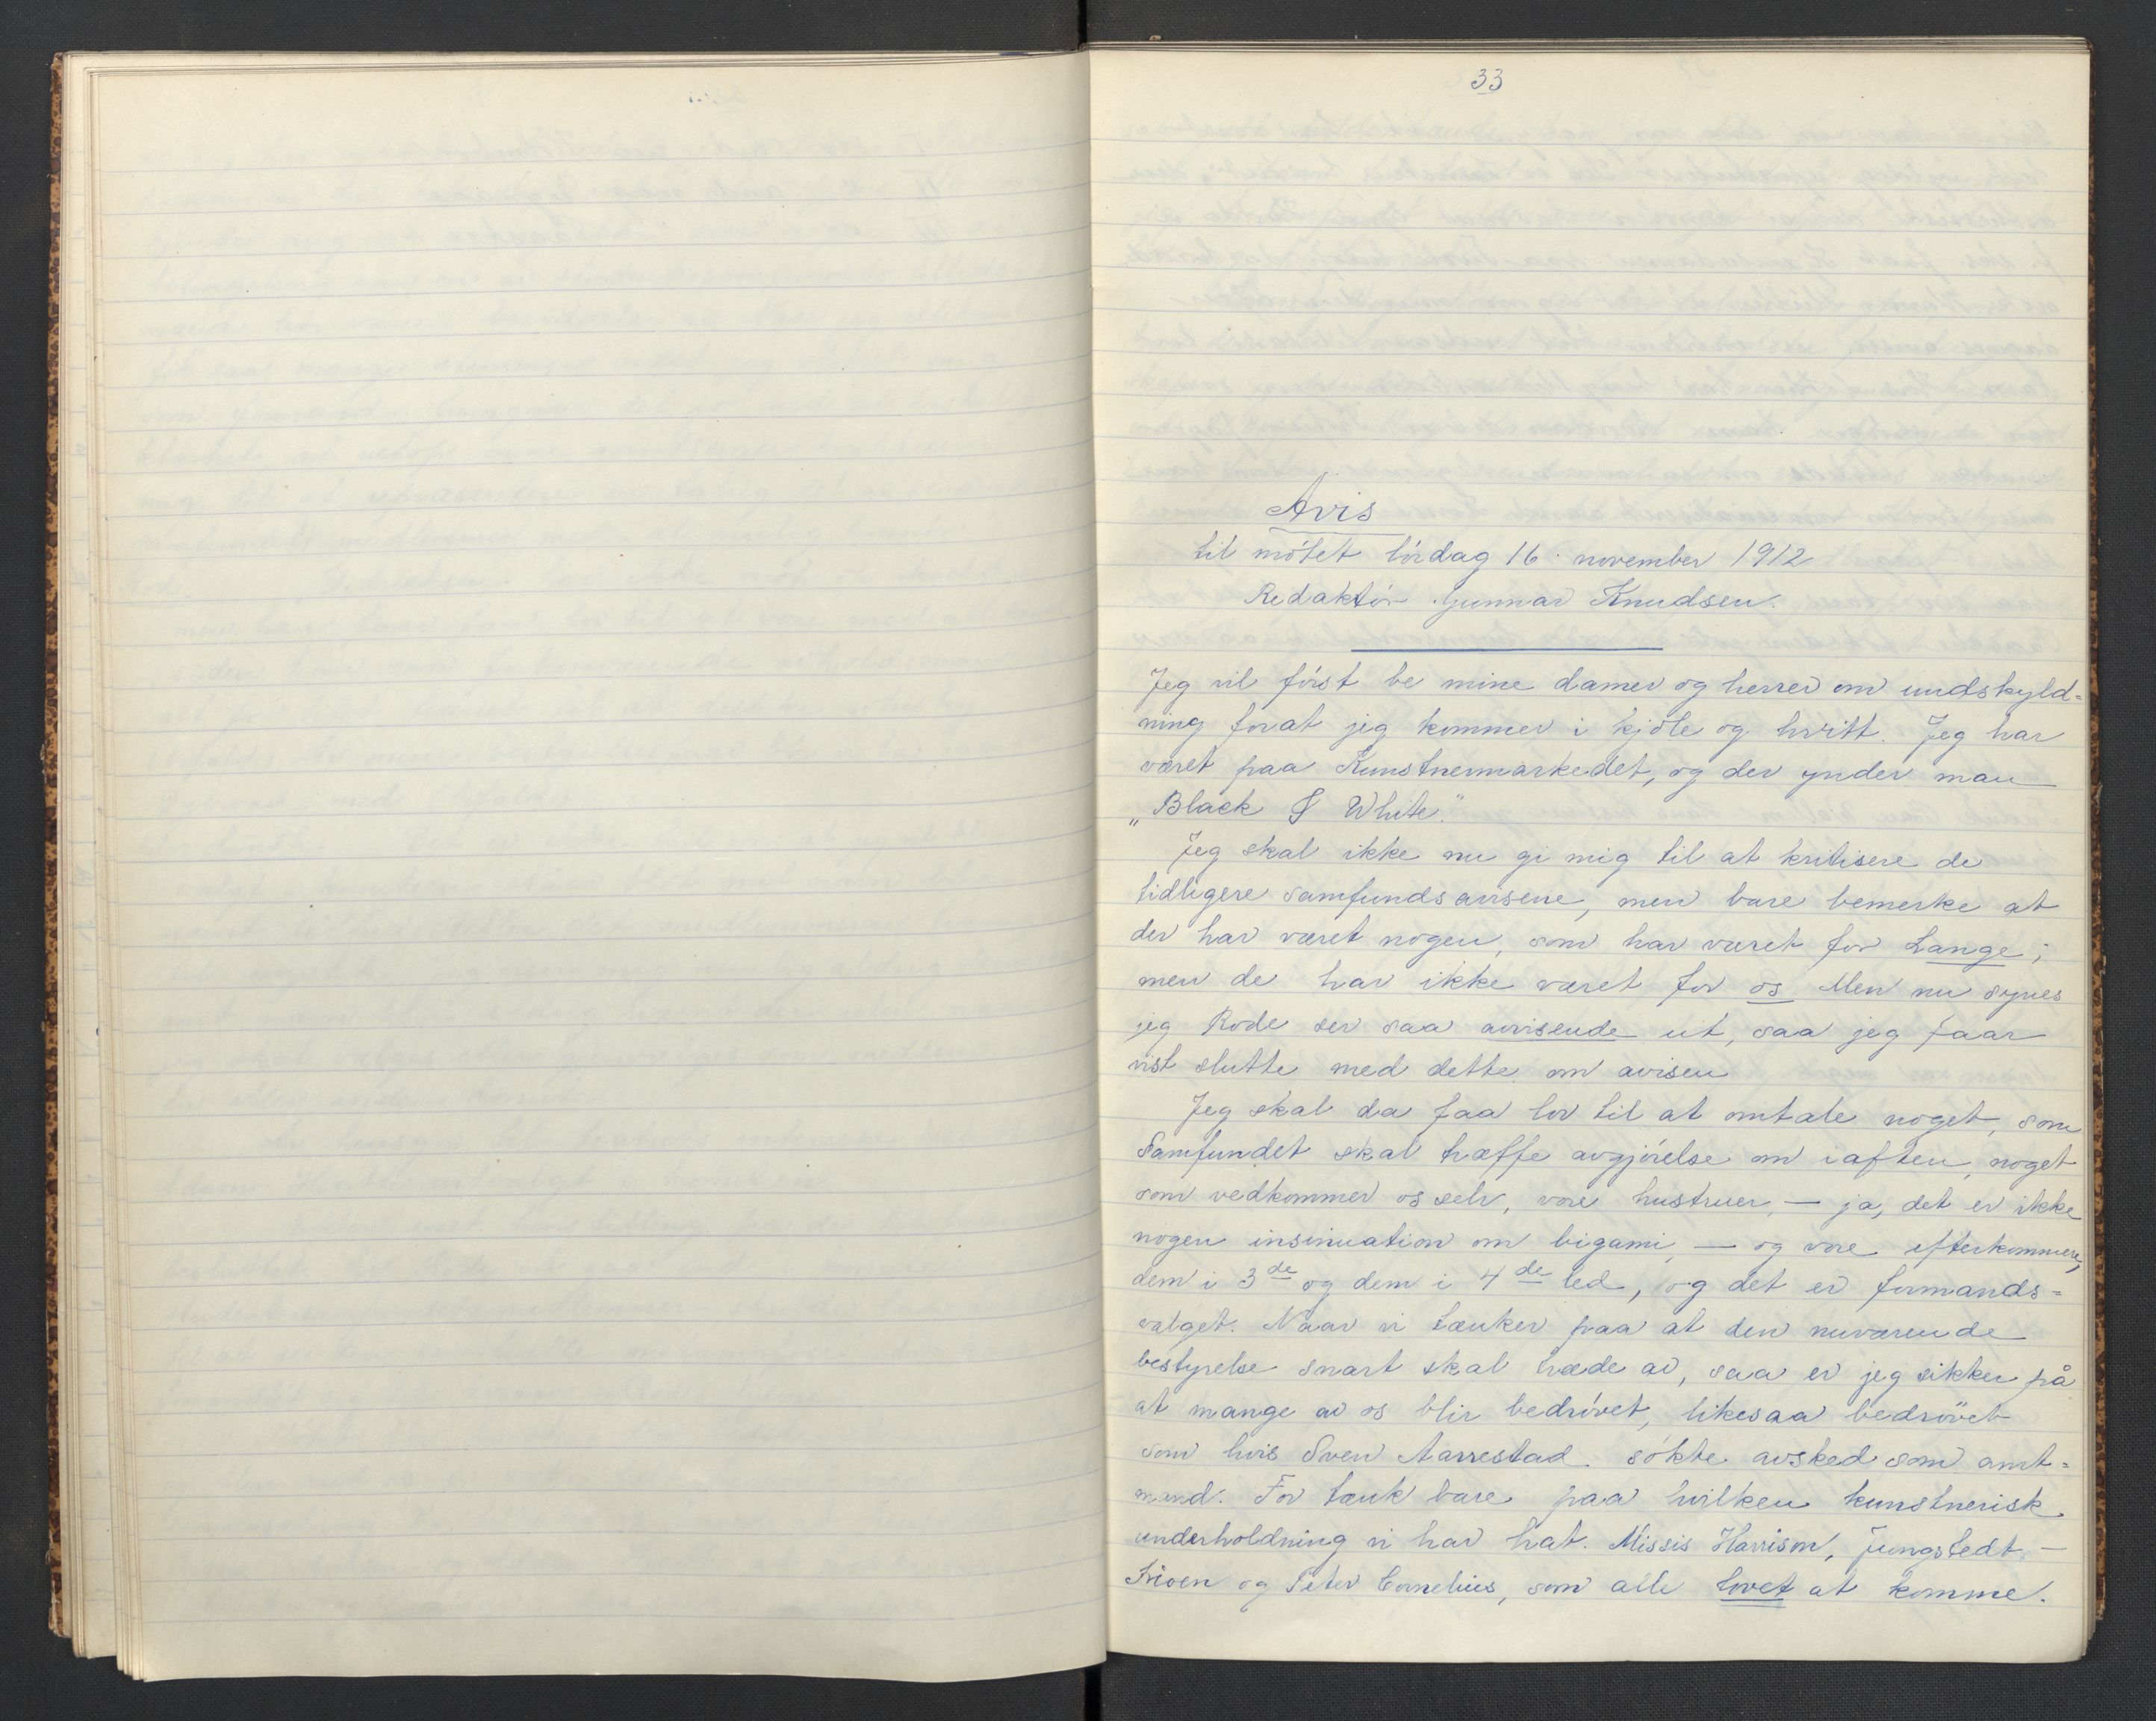 33
Avis
til mötet lördag 16. november 1912
Redaktör Gunnar Knudsen.
Jeg vil först be mine damer og herrer om undskyld=
ning forat jeg kommer i kjole og hvitt. Jeg har
været paa Kunstnermarkedet, og der ynder man
„Black & White".
Jeg skal ikke nu gi mig til at kritisere de
tidligere samfundsavisene, men bare bemerke at
der har været nogen, som har været for Lange;
men de har ikke været for os. Men nu synes
jeg Rode ser saa avvisende ut, saa jeg faar
vist slutte med dette om avisen
Jeg skal da faa lov til at omtale noget, som
Samfundet skal træffe avgjörelse om iaften, noget
som vedkommer os selv, vore hustruer, — ja, det er ikke
nogen insinuation om bigami, — og vore efterkommere,
dem i 3de og dem i 4de led, og det er formands=
valget. Naar vi tænker paa at den nuværende
bestyrelse snart skal træde av, saa er jeg sikker på
at mange av os blir bedrövet, likesaa bedrövet
som hvis Sven Aarrestad. sökte avsked som amt=
mand. For tænk bare paa hvilken kunstnerisk
underholdning vi har hat. Missis Harrison, Jungstedt, —
og Peter Cornelius, som alle lovet at komme.